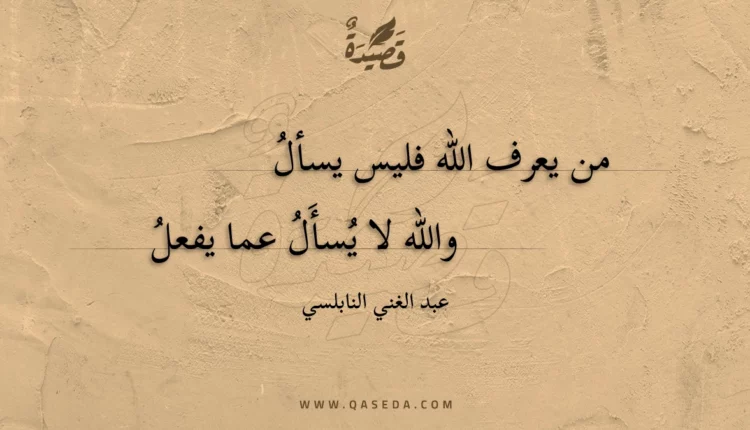 قَصِيْدَةٌ
من يعرف الله فليس يسألُ
والله لا يُسأَلُ عما يفعلُ
عبد الغني النابلسي
WWW.QASEDA.COM